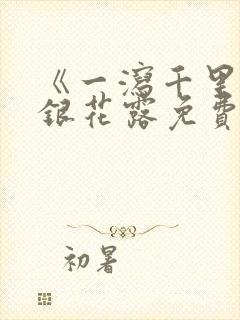 《一瀉千里
銀花露免費
初暑